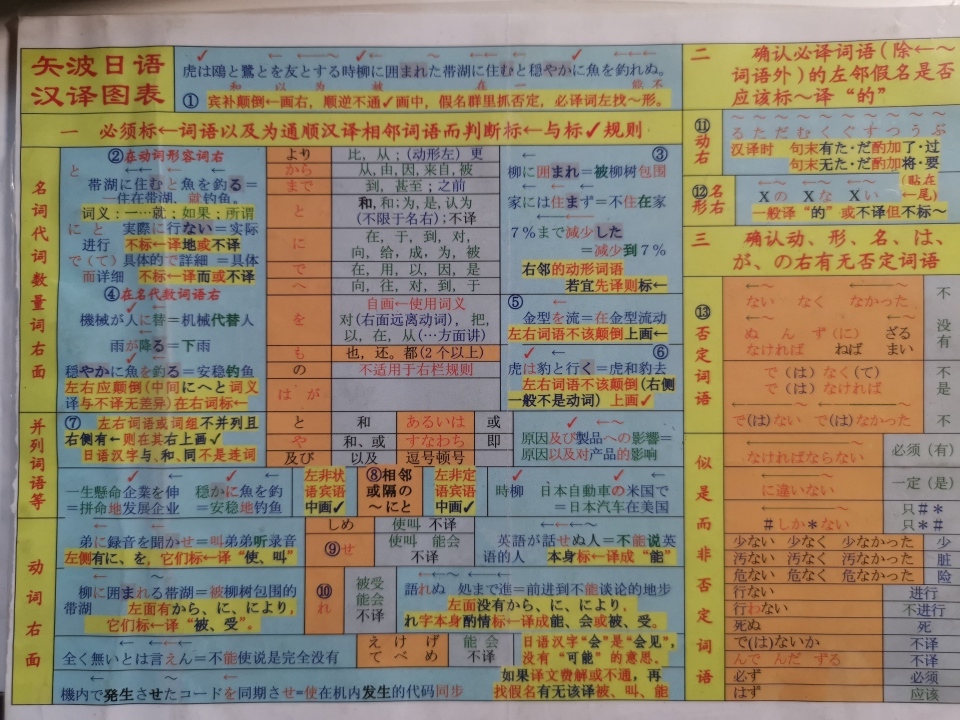 矢波日语
汉译图表
虎は鴎と鷺とを友とする時柳に囲まれた帯湖に住むと穏やかに魚を釣れぬ。
① 宾补颠倒←画右，顺逆不通✓画中，假名群里抓否定，必译词左找～形。
一 必须标←词语以及为通顺汉译相邻词语而判断标←与标✓规则
名词代词数量词右面
②在动词形容词右
帯湖に住むと魚を釣る＝
一住在帯湖，就钓鱼。
词义：一…就；如果；所谓
に と 实際に行ない＝实际
进行 不标←译地或不译
で（て）具体的で詳細＝具体
而详细 不标←译而或不译
④在名代数词语右
機械が人に替＝机械代替人
雨が降る＝下雨
穏やかに魚を釣る＝安稳钓鱼
左右应颠倒(中间にへと词义
译与不译无差异)在右词标←
より 比，从；(动形左) 更
から 从,由,因,来自,被
まで 到，甚至；之前
と 和,和;为,是,认为
(不限于名右);不译
に 在，于，到，对，
向，给，成，为，被
で 在，用，以，因，是
へ 向，往，对，到，于
を 自画←使用词义
对(右面远离动词)，把，
以，在,从(…方面讲)
も 也，还。都(2个以上)
の 不适用于右栏规则
は が
③
柳に囲まれ＝被柳树包围
家には住まず＝不住在家
7％まで減少した
＝减少到7％
右邻的动形词语
若宜先译则标←
⑤
金型を流＝在金型流动
左右词语不该颠倒上画←
⑥
虎は豹と行く＝虎和豹去
左右词语不该颠倒(右侧
一般不是动词) 上画✓
并列词语等
⑦ 左右词语或词组不并列且
右侧有←则在其右上画✓
日语汉字与、和、同不是连词
と 和 あるいは 或
や 和、或 すなわち 即
及び 以及 逗号顿号
原因及び製品への影響＝
原因以及对产品的影响
一生懸命企業を伸 穏かに魚を釣
＝拼命地发展企业 ＝安稳地钓鱼
左非状
语宾语
中画✓
⑧相邻
或隔の
～にと
左非定
语宾语
中画✓
時柳 日本自動車の米国で
＝日本汽车在美国
动词右面
弟に録音を聞かせ＝叫弟弟听录音
左侧有に、を，它们标←译“使、叫”
しめ 使叫 不译
⑨せ 使叫 能会
不译
英語が話せぬ人＝不能说英
语的人 本身标←译成“能”
柳に囲まれる帯湖＝被柳树包围的
帯湖 左面有から、に、により，
它们标←译“被、受”。
⑩れ
被受
能会
不译
語れぬ 処まで進＝前进到不能谈论的地步
左面没有から、に、により，
れ字本身酌情标←译成能、会或被、受。
全く無いとは言えん＝不能使说是完全没有
え け げ
て べ め
能 会
不译
日语汉字“会”是“会见”，
没有“可能”的意思。
機内で発生させたコードを同期させ＝使在机内发生的代码同步
如果译文费解或不通，再
找假名有无该译被、叫、能
二 确认必译词语(除←～
词语外)的左邻假名是否
应该标～译“的”
⑪动右
る た だ む く ぐ す つ う ぶ
汉译时 句末有た·だ酌加了·过
句末无た·だ酌加将·要
⑫名形右
Xの Xな Xい (贴在
←尾)
一般译“的”或不译但不标～
三 确认动、形、名、は、
が、の右有无否定词语
⑬否定词语
ない なく なかった
ぬ ん ず（に） ざる
なければ ねば まい
不
没有
で（は）なく(て)
で（は）なければ
不是
で(は)ない で(は)なかった 不
似是而非否定词语
なければならない 必须（有）
に違いない 一定（是）
＃しか＊ない
只＃＊
只＊＃
少ない 少なく 少なかった 少
汚ない 汚なく 汚なかった 脏
危ない 危なく 危なかった 险
行ない 进行
行わない 不进行
死ぬ 死
で(は)ないか 不译
んで んだ ずる 不译
必ず 必须
はず 应该